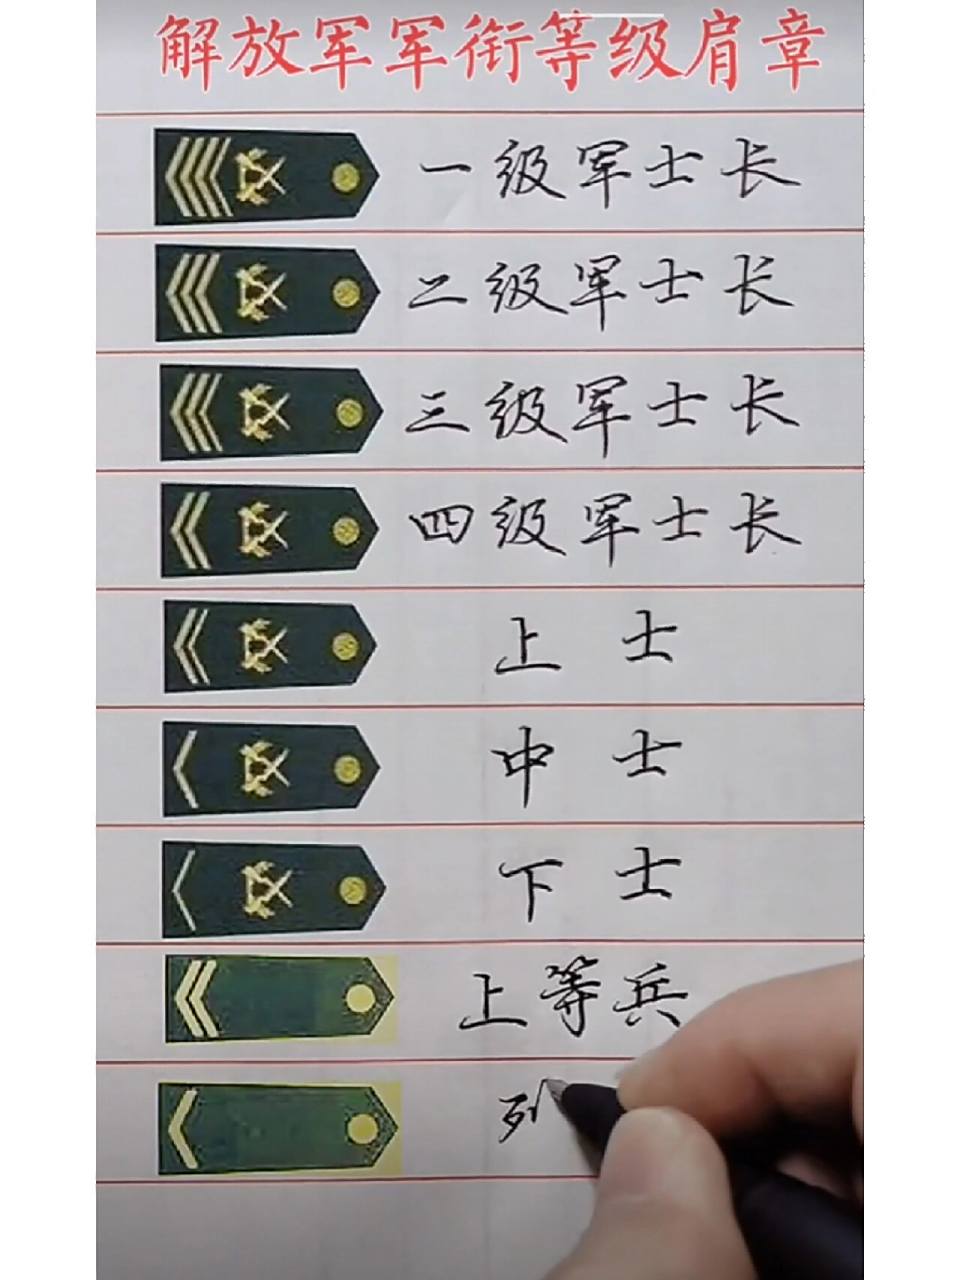 解放军军衔等级肩章
一级军士长
二级军士长
三级军士长
四级军士长
上士
中士
下士
上等兵
列